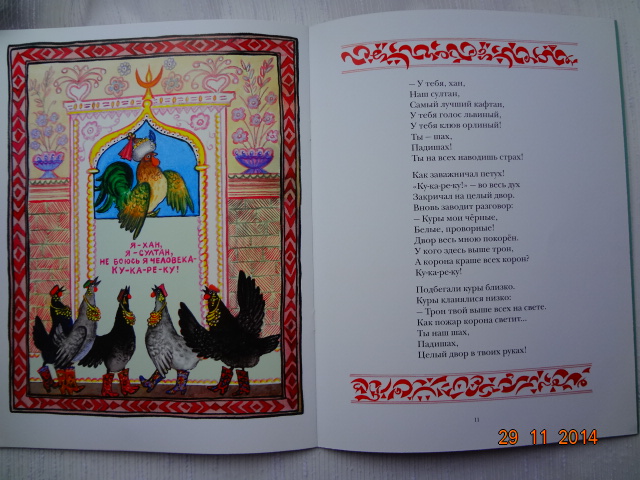 Я - ХАН,
Я - СУЛТАН,
НЕ БОЮСЬ Я ЧЕЛОВЕКА-
КУ-КА-РЕ-КУ!
— У тебя, хан,
Наш султан,
Самый лучший кафтан,
У тебя голос львиный,
У тебя клюв орлиный!
Ты — шах,
Падишах!
Ты на всех наводишь страх!
Как заважничал петух!
«Ку-ка-ре-ку!» — во весь дух
Закричал на целый двор.
Вновь заводит разговор:
— Куры мои чёрные,
Белые, проворные!
Двор весь мною покорён.
У кого здесь выше трон,
А корона краше всех корон?
Ку-ка-ре-ку!
Подбегали куры близко.
Куры кланялися низко:
— Трон твой выше всех на свете.
Как пожар корона светит...
Ты наш шах,
Падишах,
Целый двор в твоих руках!
11
29 11 2014